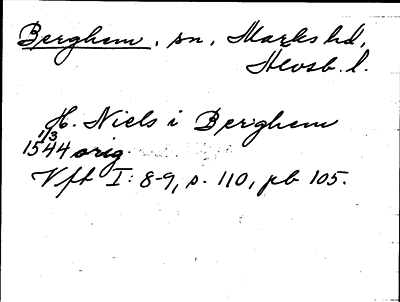 Berghem, sn, Marks hd,
Älvsb. l.
H. Niels i Berghem
1/3
1544 orig.
Vft I: 8-9, s. 110, pb 105.